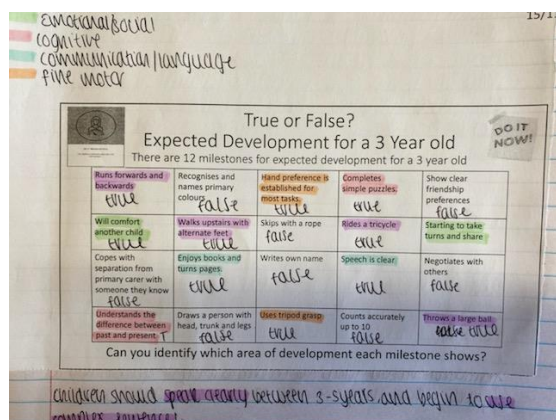 emotional/social
15/1
cognitive
communication/language
fine motor
True or False?
Expected Development for a 3 Year old
There are 12 milestones for expected development for a 3 year old
DO IT
NOW!
Runs forwards and
backwards
true
Recognises and
names primary
colours
false
Hand preference is
established for
most tasks
true
Completes
simple puzzles
true
Show clear
friendship
preferences
false
Will comfort
another child
true
Walks upstairs with
alternate feet
true
Skips with a rope
false
Rides a tricycle
true
Starting to take
turns and share
Copes with
separation from
primary carer with
someone they know
false
Enjoys books and
turns pages
true
Writes own name
false
Speech is clear
true
Negotiates with
others
false
Understands the
difference between
past and present T
Draws a person with
head, trunk and legs
false
Uses tripod grasp
true
Counts accurately
up to 10
false
Throws a large ball
false true
Can you identify which area of development each milestone shows?
children should speak clearly between 3-5years and begin to use
complex sentences